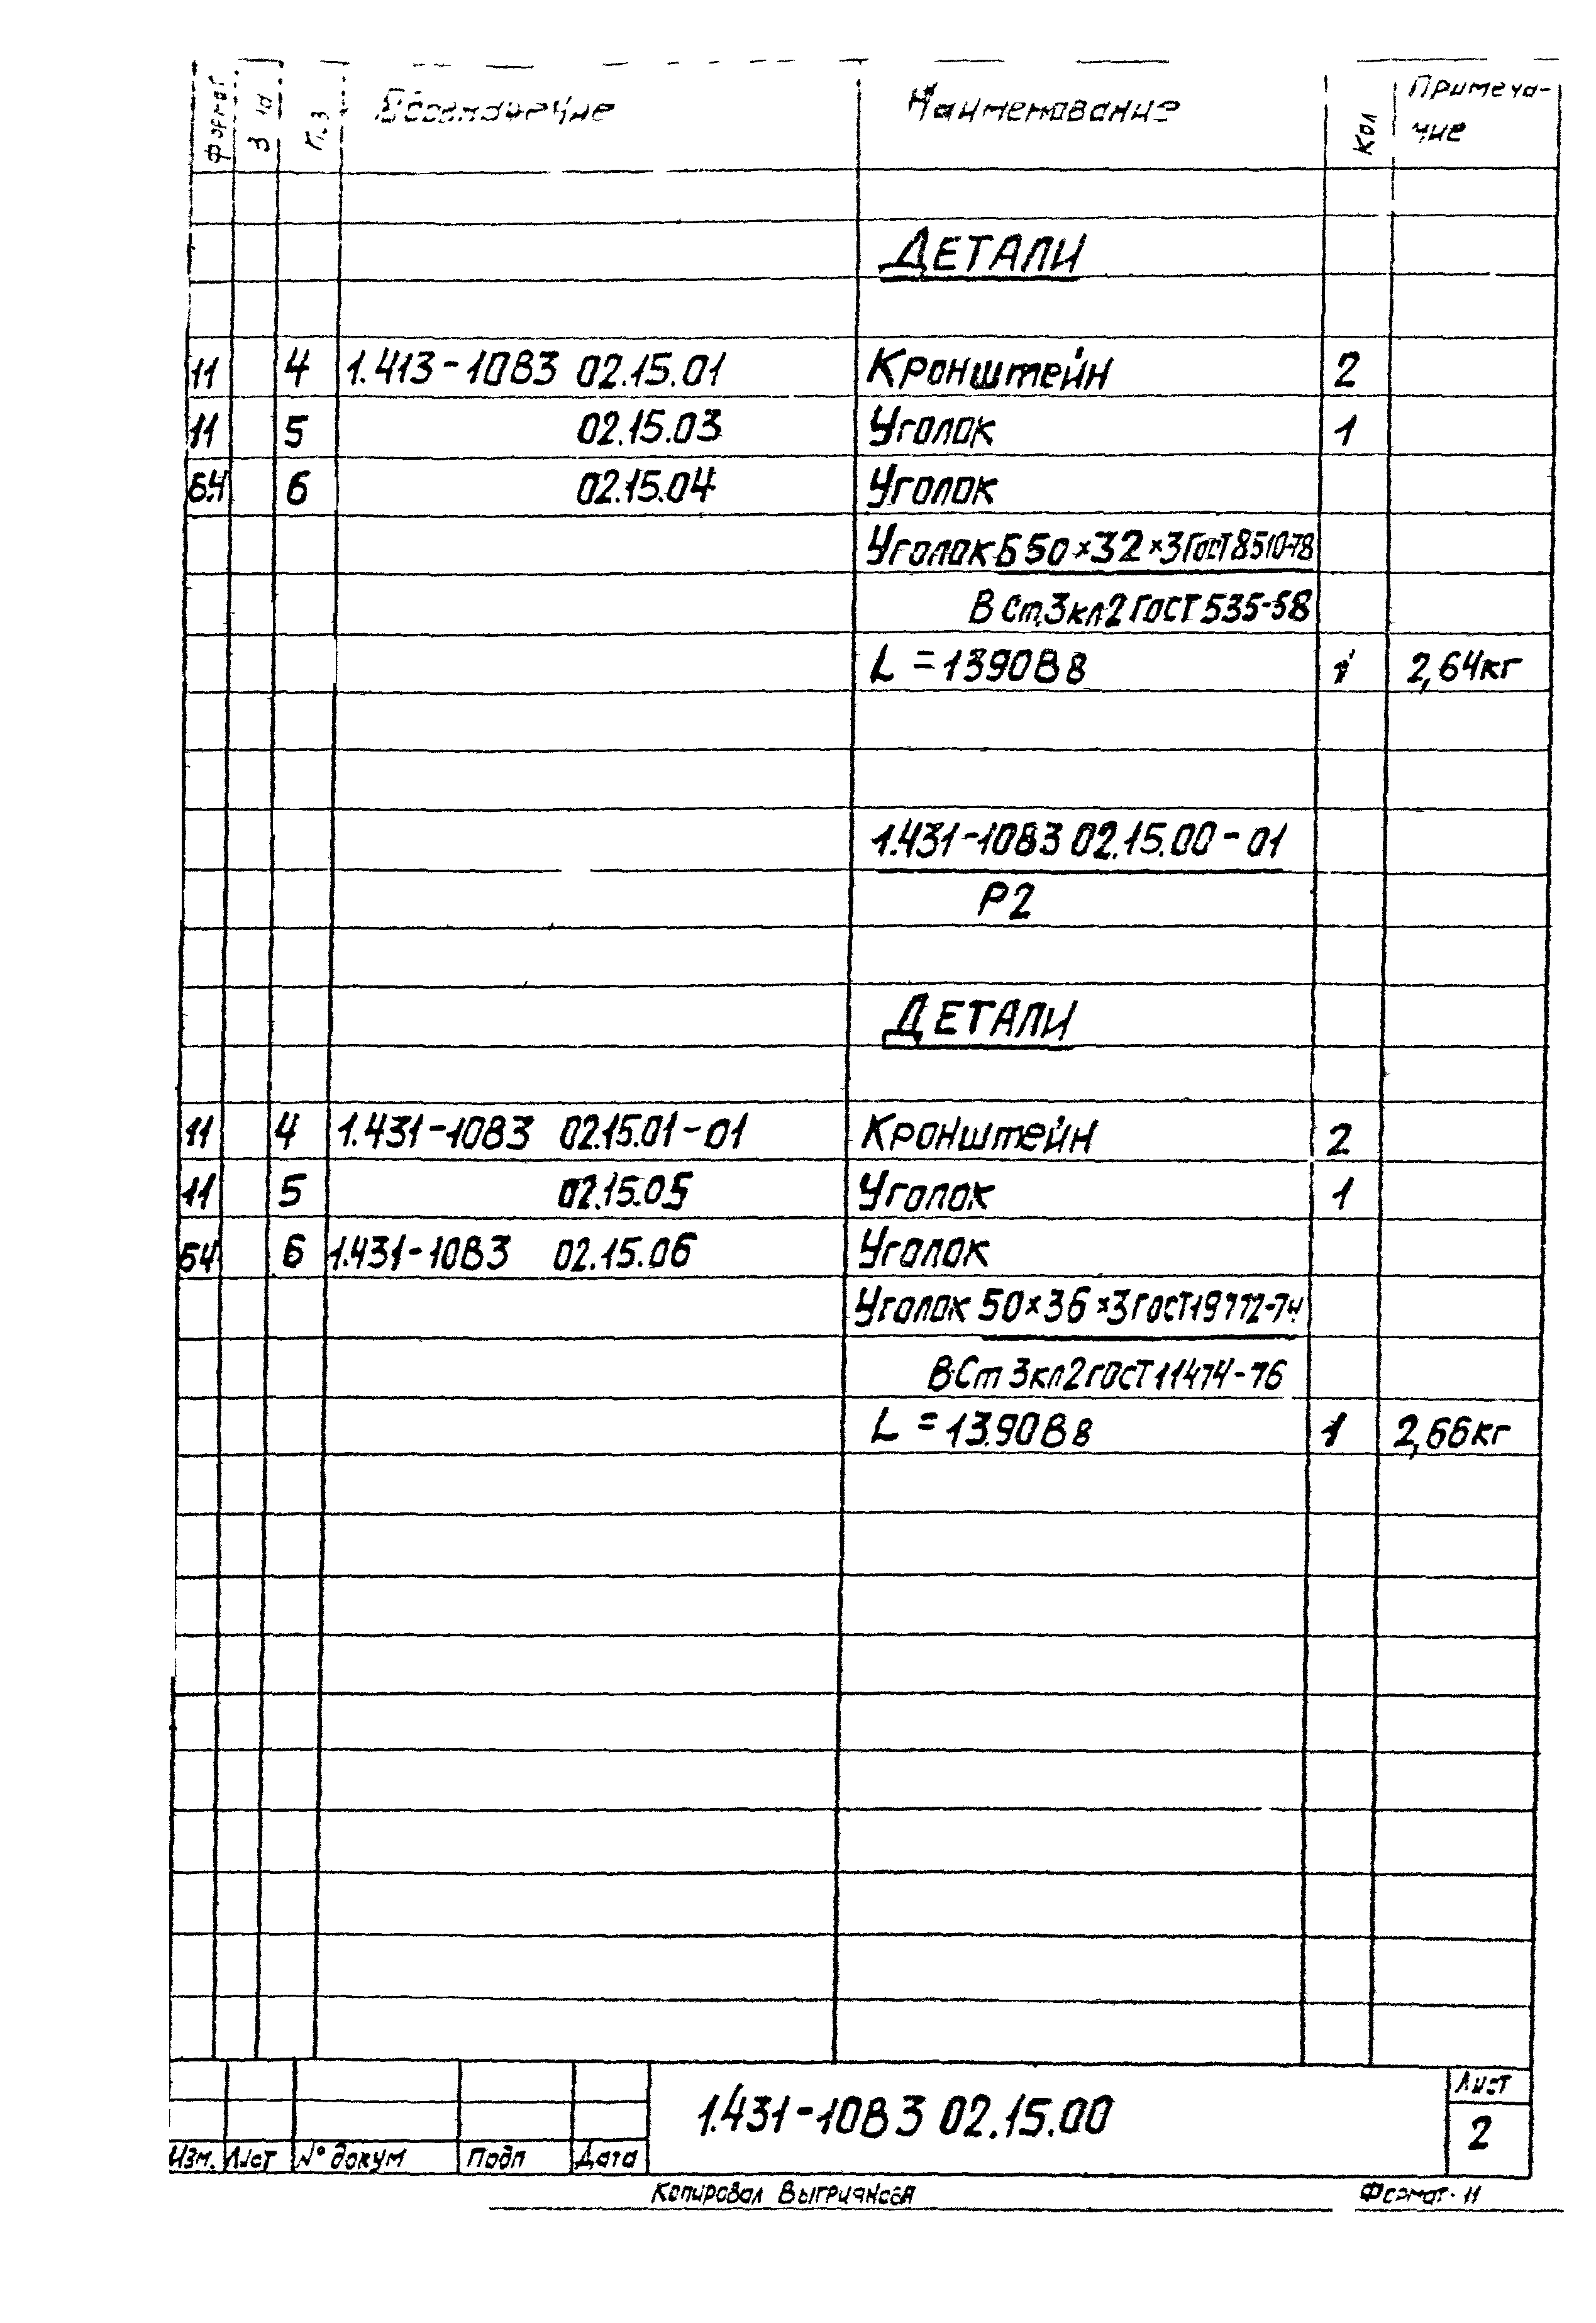 Формат
Обозначение
Наименование
Кол
Примеча-
ние
ДЕТАЛИ
11 4 1.413-10В3 02.15.01 Кронштейн 2
11 5 02.15.03 Уголок 1
Б.Ч 6 02.15.04 Уголок
Уголок Б 50×32×3 ГОСТ 8510-78
В Ст.3кп2 ГОСТ 535-58
L = 1390В8 1 2,64кг
1.431-10В3 02.15.00-01
Р2
ДЕТАЛИ
11 4 1.431-10В3 02.15.01-01 Кронштейн 2
11 5 02.15.05 Уголок 1
БЧ 6 1.431-10В3 02.15.06 Уголок
Уголок 50×36×3 ГОСТ 19772-74
ВСт 3кп2 ГОСТ 11474-76
L = 1390В8 1 2,66кг
1.431-10В3 02.15.00
Лист
2
Изм. Лист № докум Подп Дата
Копировал
Формат 11